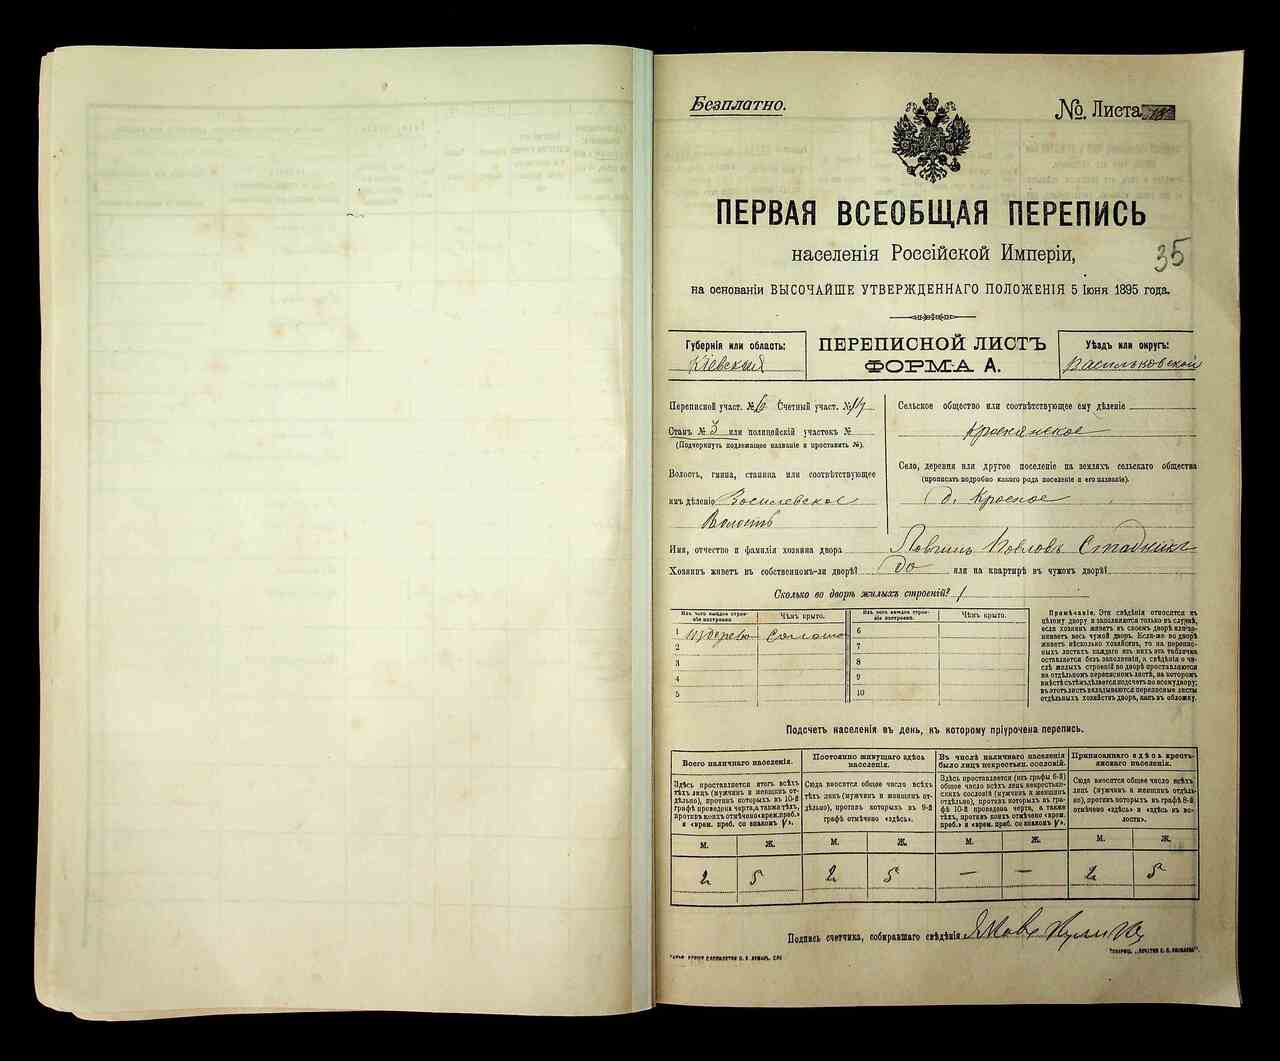 Безплатно.
№ Листа
ПЕРВАЯ ВСЕОБЩАЯ ПЕРЕПИСЬ
населенія Россійской Имперіи,
35
на основаніи ВЫСОЧАЙШЕ УТВЕРЖДЕННАГО ПОЛОЖЕНІЯ 5 Іюня 1895 года.
Губернія или область:
Кіевская
ПЕРЕПИСНОЙ ЛИСТЪ
ФОРМА А.
Уѣздъ или округъ:
Васильковской
Переписной участ. № 6 Счетный участ. №
Станъ № 3 или полицейскій участокъ №
(Подчеркнуть подлежащее названіе и проставить №).
Волость, гмина, станица или соотвѣтствующее
имъ дѣленіе
Волость
Сельское общество или соотвѣтствующее ему дѣленіе
Село, деревня или другое поселеніе на земляхъ сельскаго общества
(прописать подробно какого рода поселеніе и его названіе).
д. Красное
Имя, отчество и фамилія хозяина двора Павловъ Стадникъ
Хозяинъ живетъ въ собственномъ-ли дворѣ? да или на квартирѣ въ чужомъ дворѣ?
Сколько во дворѣ жилыхъ строеній? 1
Изъ чего каждое строеніе построено
Чѣмъ крыто.
1 Соломою
2
3
4
5
Изъ чего каждое строеніе построено
Чѣмъ крыто.
6
7
8
9
10
Примѣчаніе. Эти свѣдѣнія относятся къ
цѣлому двору и заполняются только въ случаѣ,
если хозяинъ живетъ въ своемъ дворѣ или занимаетъ
весь чужой дворъ. Если-же во дворѣ
живетъ нѣсколько хозяйствъ, то на переписныхъ
листахъ каждаго изъ нихъ эта табличка
оставляется безъ заполненія, а свѣдѣнія о числѣ
жилыхъ строеній во дворѣ проставляются
на отдѣльномъ переписномъ листѣ, на которомъ
вмѣстѣ съ тѣмъ дѣлается подсчетъ по всему двору;
въ этотъ листъ вкладываются переписные листы
отдѣльныхъ хозяйствъ двора, какъ въ обложку.
Подсчетъ населенія въ день, къ которому пріурочена перепись.
Всего наличнаго населенія.
Здѣсь проставляется итогъ всѣхъ
тѣхъ лицъ (мужчинъ и женщинъ отдѣльно),
противъ которыхъ въ 10-й
графѣ проведена черта, а также тѣхъ,
противъ коихъ отмѣчено «врем. преб.»
и «врем. преб. со знакомъ V».
М. Ж.
2 5
Постоянно живущаго здѣсь
населенія.
Сюда вносятся общее число всѣхъ
тѣхъ лицъ (мужчинъ и женщинъ отдѣльно),
противъ которыхъ въ 9-й
графѣ отмѣчено «здѣсь».
М. Ж.
2 5
Въ числѣ наличнаго населенія
было лицъ некрестьян. сословій.
Здѣсь проставляется (изъ графы 6-й)
общее число всѣхъ лицъ некрестьянскихъ
сословій (мужчинъ и женщинъ
отдѣльно), противъ которыхъ въ графѣ
10-й проведена черта, а также
тѣхъ, противъ коихъ отмѣчено «врем.
преб.» и «врем. преб. со знакомъ V».
М. Ж.
— —
Приписаннаго здѣсь крестьянскаго
населенія.
Сюда вносятся общее число всѣхъ
лицъ (мужчинъ и женщинъ отдѣльно),
противъ которыхъ въ графѣ 8-й
отмѣчено «здѣсь» и «здѣсь въ волости».
М. Ж.
2 5
Подпись счетчика, собиравшаго свѣдѣнія